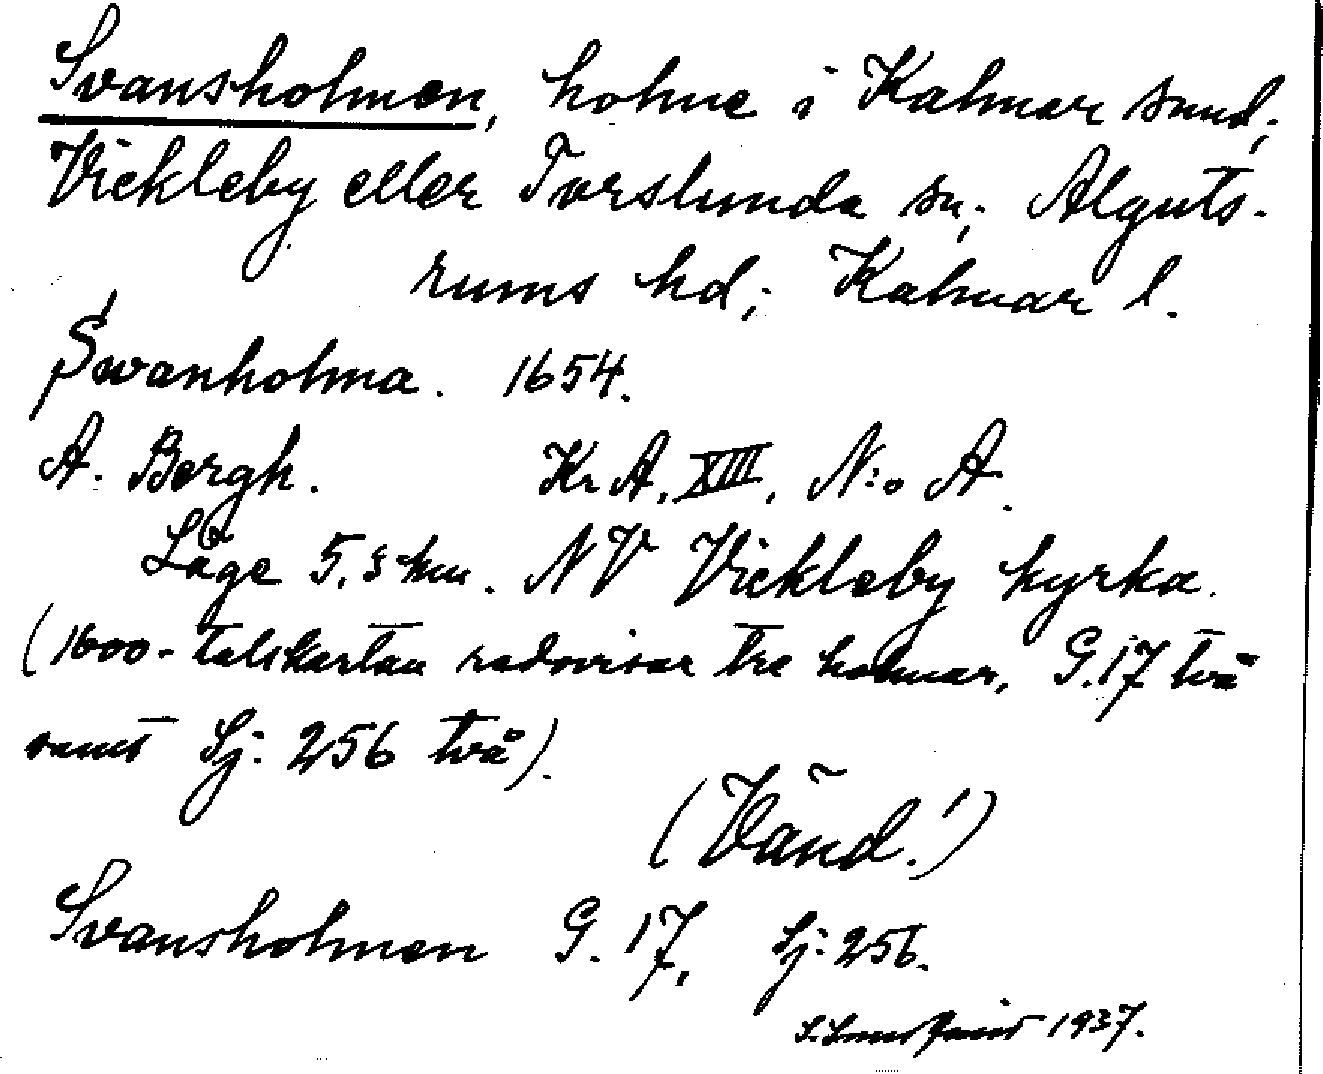 Svansholmen, holme i Kalmar sund;
Vickleby eller Torslunda sn; Alguts-
rums hd; Kalmar l.
Svanholma. 1654.
A. Bergh. Kr A, XIII, N:o A.
Läge 5,5 km. NV Vickleby kyrka.
(1600-talskartan redovisar tre holmar, G.17 två
samt Sj: 256 två).
(Vänd!)
Svansholmen G. 17, Sj: 256.
1937.